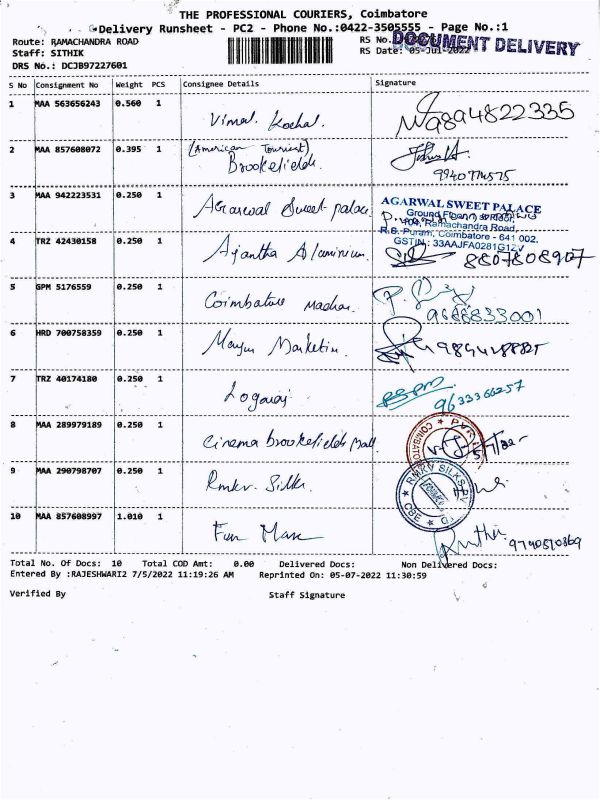 THE PROFESSIONAL COURIERS, Coimbatore
Delivery Runsheet - PC2 - Phone No.:0422-3505555 - Page No.:1
Route: RAMACHANDRA ROAD
RS No.
DOCUMENT DELIVERY
Staff: SITHIK
RS Date: 05-Jul-2022
DRS No.: DCJB97227601
S No Consignment No Weight PCS Consignee Details Signature
1 MAA 563656243 0.560 1 Vimal Kochal. 9894822335
2 MAA 857608072 0.395 1 (American Tourist) Brookefields.
3 MAA 942223531 0.250 1 Agarwal Sweet palace
AGARWAL SWEET PALACE
Ground Floor
Ramachandra Road,
R.S. Puram, Coimbatore - 641 002.
GSTIN : 33AAJFA0281G1ZV
4 TRZ 42430158 0.250 1 Ajantha Aluminium. 8807808907
5 GPM 5176559 0.250 1 Coimbatore 9688833001
6 HRD 700758359 0.250 1
7 TRZ 40174180 0.250 1 Logaraj 9633366257
8 MAA 289979189 0.250 1 Cinema brookefields mall
COIMBATORE
9 MAA 290798707 0.250 1 Rmkv. Silks.
RMKV SILKS PV
CBE
10 MAA 857608997 1.010 1 Fun 9790570369
Total No. Of Docs: 10 Total COD Amt: 0.00 Delivered Docs: Non Delivered Docs:
Entered By :RAJESHWARI2 7/5/2022 11:19:26 AM Reprinted On: 05-07-2022 11:30:59
Verified By Staff Signature